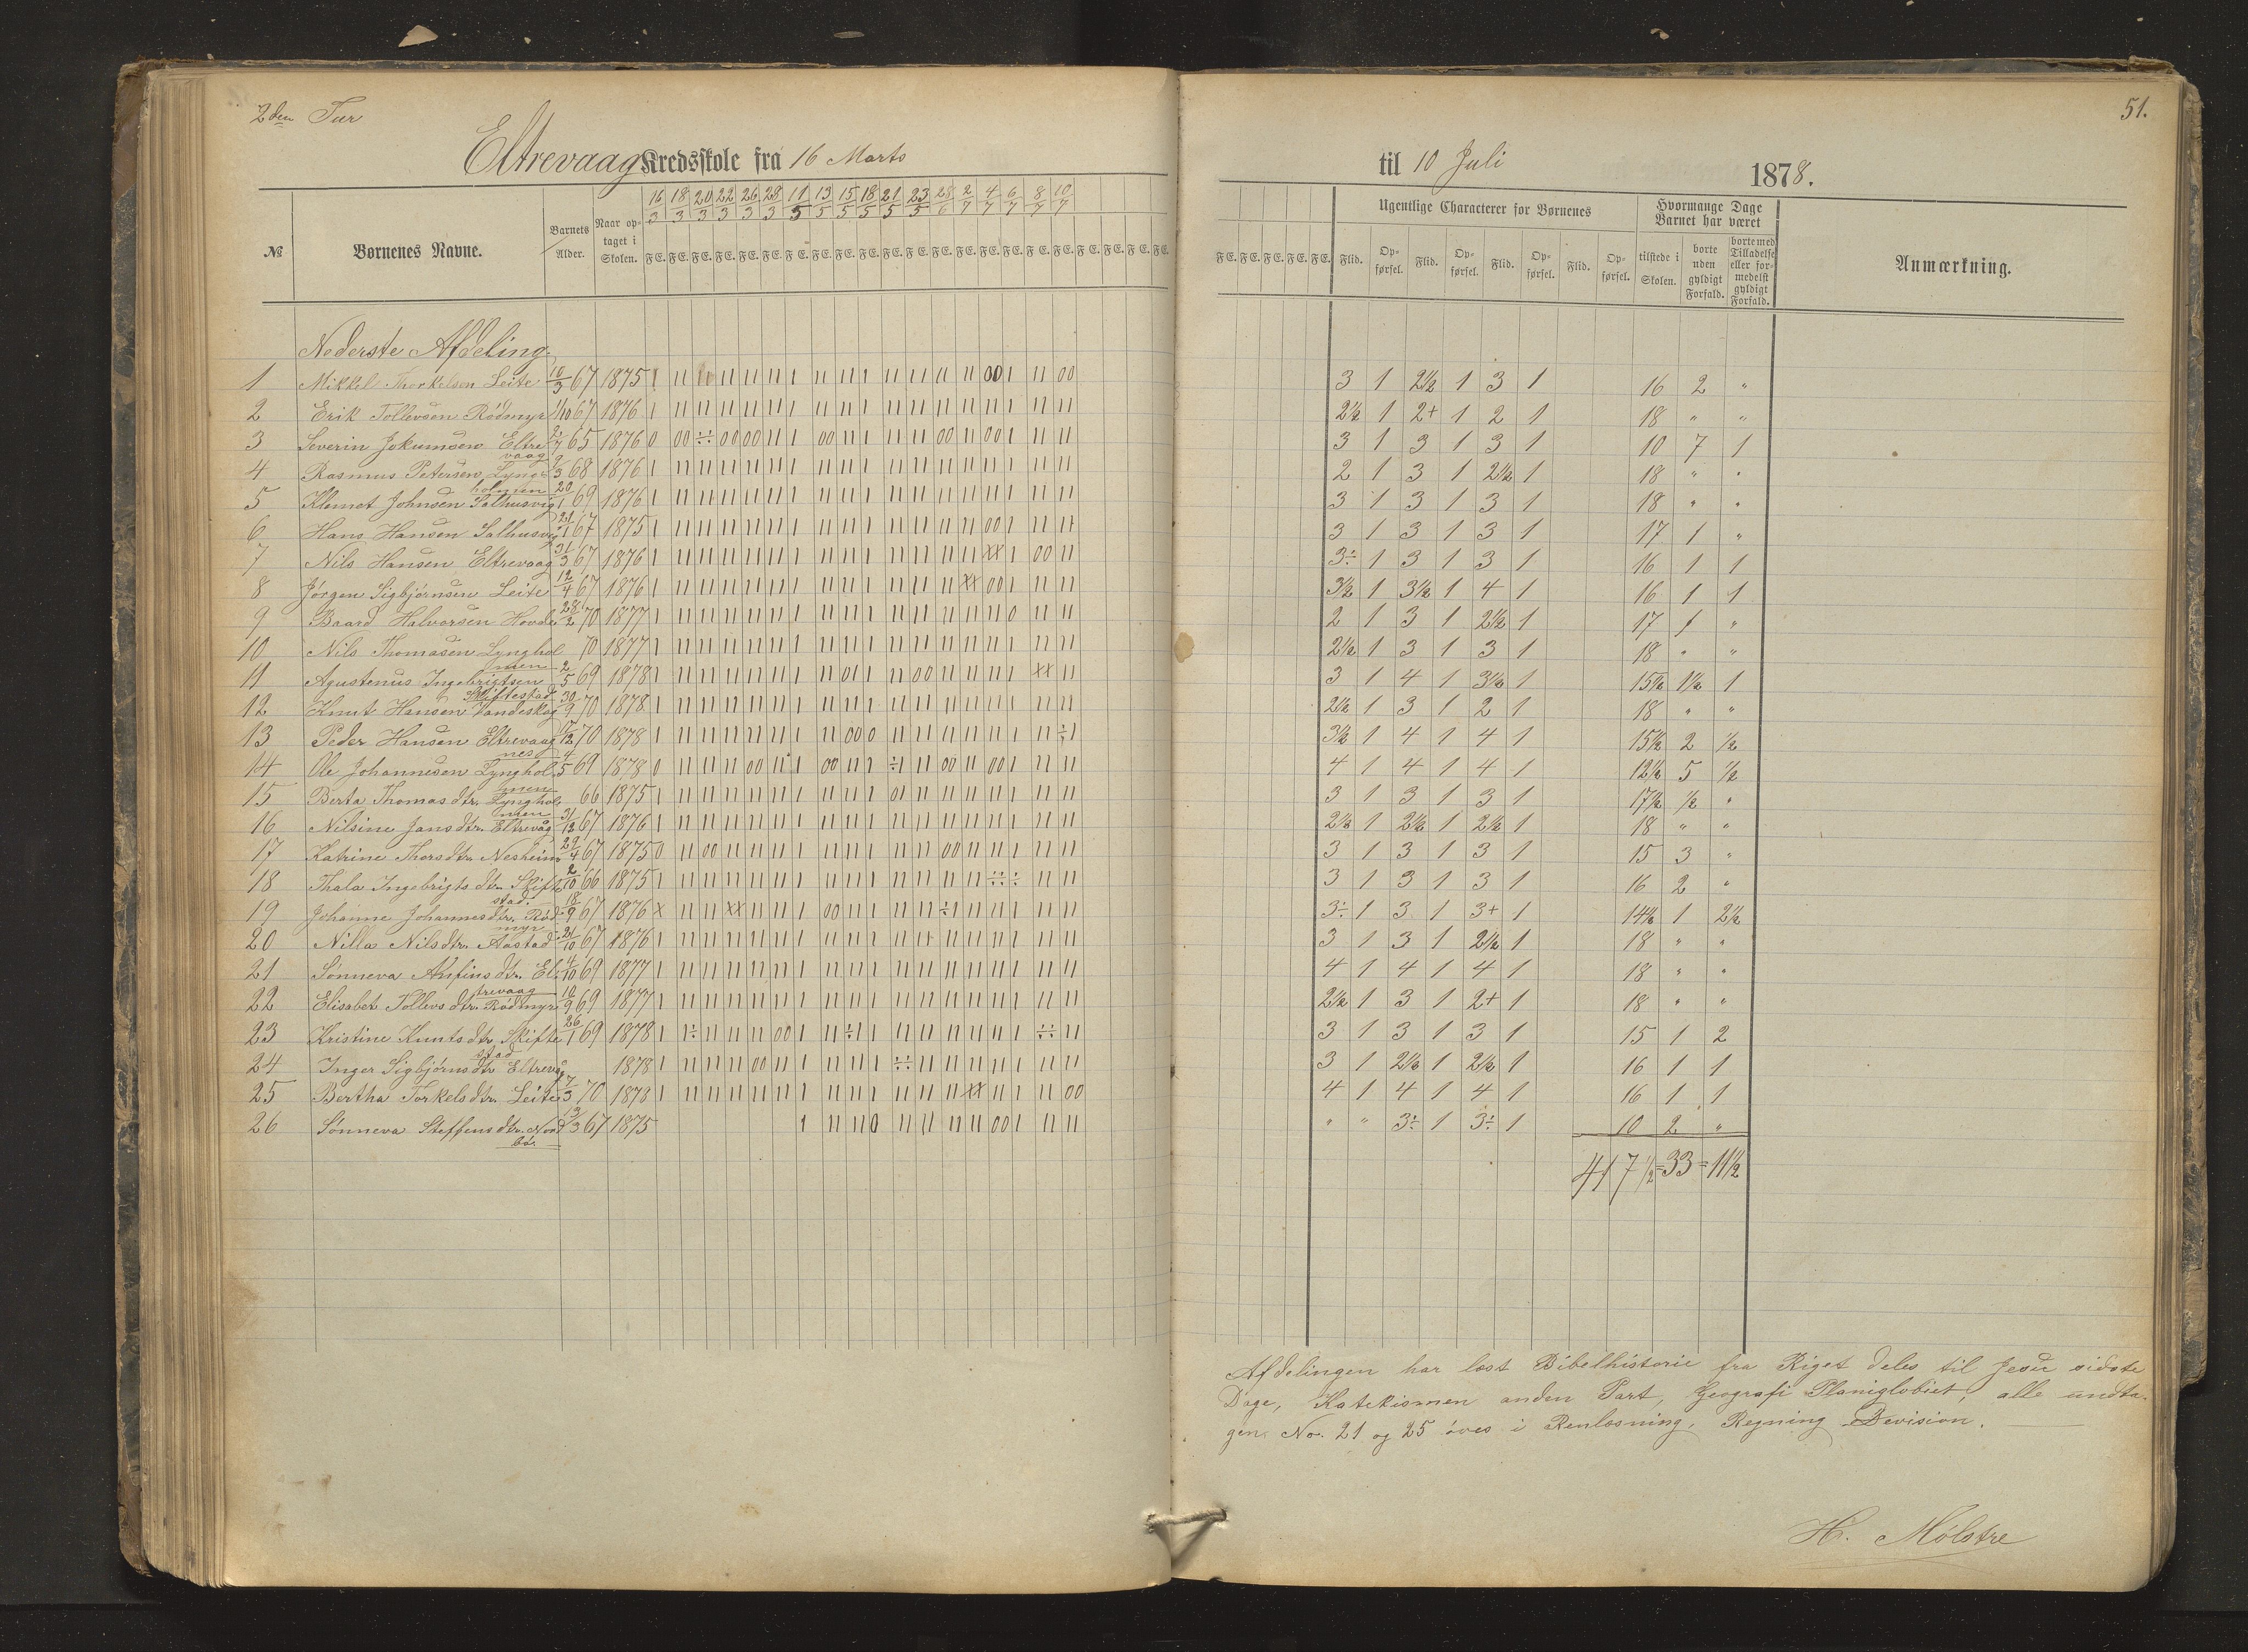 2den Tur
Eltrevaag Kredsskole fra 16 Marts
№ Børnenes Navne. Barnets Alder. Naar optaget i Skolen. 16/3 18/3 20/3 22/3 26/3 28/3 11/5 13/5 15/5 18/5 21/5 23/5 28/6 2/7 4/7 6/7 8/7 10/7
F E. F E. F E. F E. F E. F E. F E. F E. F E. F E. F E. F E. F E. F E. F E. F E. F E. F E. F E. F E. F E. F E.
Nederste Afdeling.
1 Mikkel Thorkelsen Leite 10/3 67 1875
2 Erik Tollevsen Rødmyr 1/10 67 1876
3 Severin Jokumsen Eltrevaag 65 1876
4 Rasmus Petersen Lyngholmen 68 1876
5 Klemet Johnsen Salhusvig 20/1 69 1876
6 Hans Hansen Salhusvig 21/1 67 1875
7 Nils Hansen Eltrevaag 31/3 67 1876
8 Jørgen Sigbjørnsen Leite 12/4 67 1876
9 Baard Halvorsen Hovde 28/2 70 1877
10 Nils Thomasen Lyngholmen 70 1877
11 Agustenus Ingebrigtsen Skiftestad 2/5 69 1878
12 Knut Hansen Vandeskog 30/9 70 1878
13 Peder Hansen Eltrevaagnes 17/12 70 1878
14 Ole Johannesen Lyngholmen 4/5 69 1878
15 Berta Thomasdtr. Lyngholmen 66 1875
16 Nilsine Jansdtr. Eltrevåg 31/12 67 1876
17 Katrine Thorsdtr. Nesheim 27/4 67 1875
18 Thala Ingebrigtsdtr. Skiftestad. 2/10 66 1875
19 Johanne Johannesdtr. Rødmyr 18/9 67 1876
20 Nilla Nilsdtr. Aastad 21/10 67 1876
21 Sønneva Anfinsdtr. Eltrevaag 4/10 69 1877
22 Elisabet Tollevsdtr. Rødmyr 10/9 69 1877
23 Kristine Knutsdtr. Skiftestad 26/1 69 1878
24 Inger Sigbjørnsdtr Eltrevåg 1878
25 Bertha Torkelsdtr. Leite 7/3 70 1878
26 Sønneva Steffensdtr. Nordbø. 13/3 67 1875
51.
til 10 Juli 1878.
F E. F E. F E. F E. F E. Ugentlige Characterer for Børnenes Hvormange Dage Barnet har været Anmærkning.
Flid. Opførsel. Flid. Opførsel. Flid. Opførsel. Flid. Opførsel. tilstede i Skolen. borte uden gyldigt Forfald. borte med Tilladelse eller formedelst gyldigt Forfald.
3 1 2½ 1 3 1 16 2 "
2½ 1 2+ 1 2 1 18 " "
3 1 3 1 3 1 10 7 1
2 1 3 1 2½ 1 18 " "
3 1 3 1 3 1 18 " "
3 1 3 1 3 1 17 1 "
3÷ 1 3 1 3 1 16 1 1
3½ 1 3½ 1 4 1 16 1 1
2 1 3 1 2½ 1 17 1 "
2½ 1 3 1 3 1 18 " "
3 1 4 1 3½ 1 15½ 1½ 1
2½ 1 3 1 2 1 18 " "
3½ 1 4 1 4 1 15½ 2 ½
4 1 4 1 4 1 12½ 5 ½
3 1 3 1 3 1 17½ ½ "
2½ 1 2½ 1 2½ 1 18 " "
3 1 3 1 3 1 15 3 "
3 1 3 1 3 1 16 2 "
3÷ 1 3 1 3+ 1 14½ 1 2½
3 1 3 1 2½ 1 18 " "
4 1 4 1 4 1 18 " "
2½ 1 3 1 2+ 1 18 " "
3 1 3 1 3 1 15 1 2
3 1 2½ 1 2½ 1 16 1 1
4 1 4 1 4 1 16 1 1
" " 3÷ 1 3÷ 1 10 2 "
417½=33=11½
Afdelingen har læst Bibelhistorie fra Riget deles til Jesu sidste
Dage, Katekismen anden Part, Geografi Planiglobiet, alle undta-
gen No. 21 og 25 øves i Renlæsning, Regning Devision.
H. Mølstre